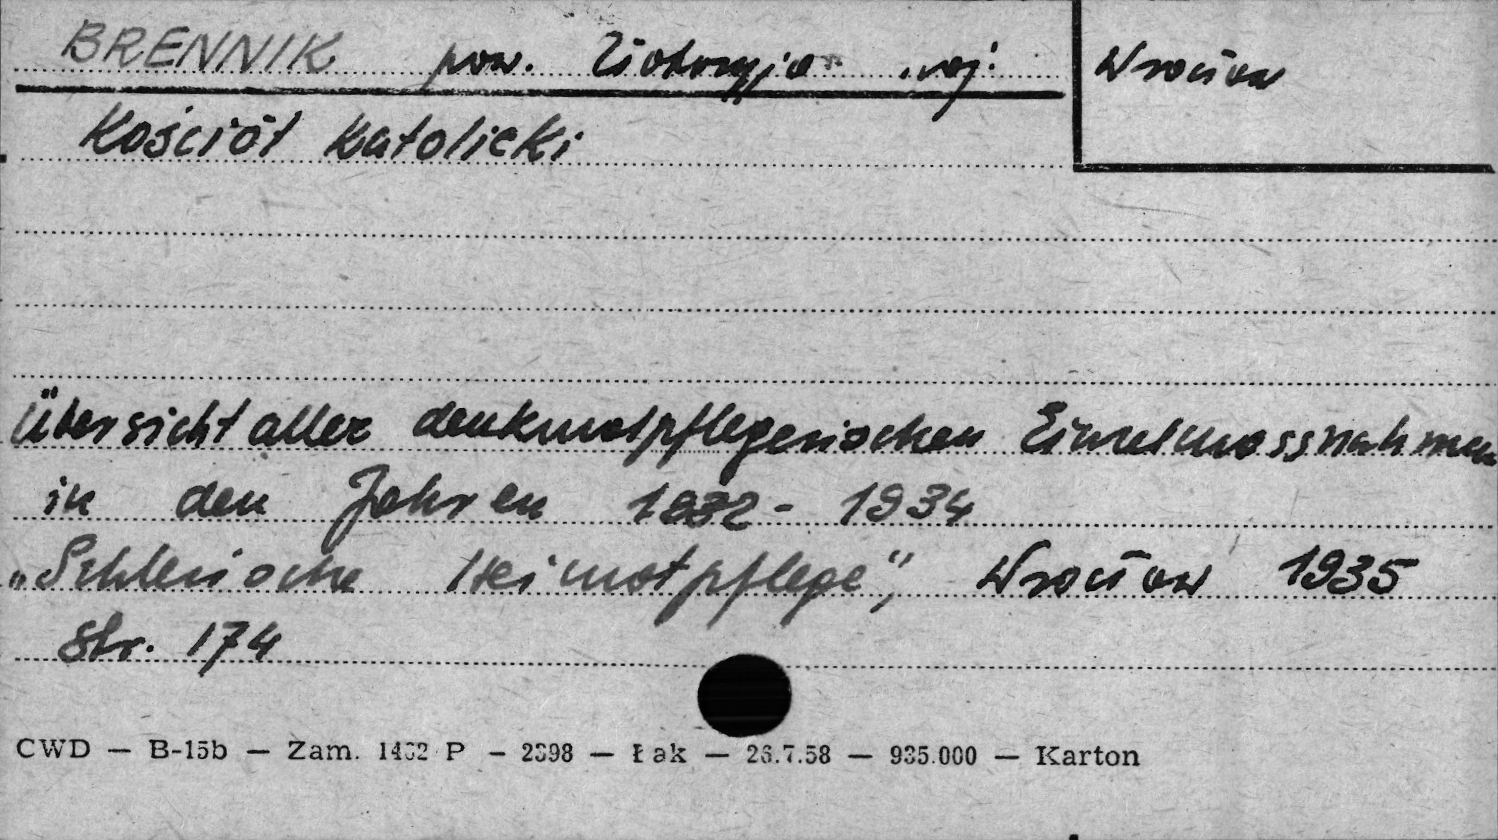 BRENNIK pow. Złotoryja woj. Wrocław
Kościół Katolicki
Übersicht aller denkmalpflegerischen Einzelmassnahmen
in den Jahren 1932 - 1934
„Schlesische Heimatpflege", Wrocław 1935
Str. 174
CWD — B-15b — Zam. 1432 P — 2398 — Łak — 26.7.58 — 935.000 — Karton